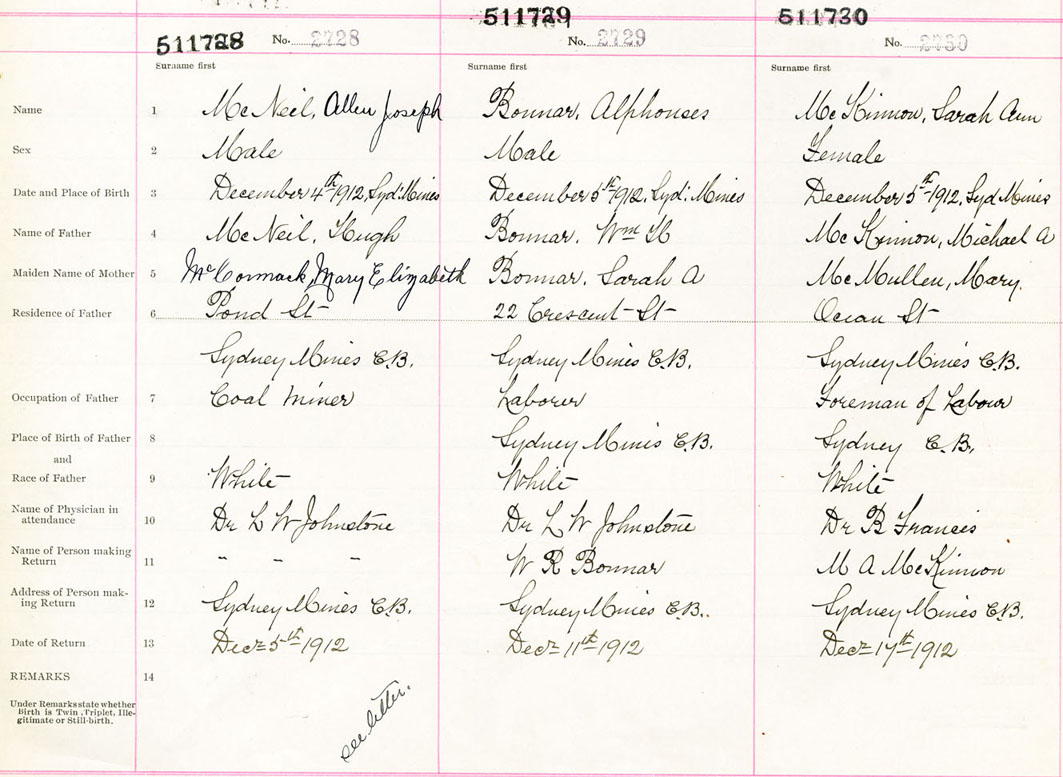 511728 No. 2728 511729 No. 2729 511730 No. 2730
Surname first Surname first Surname first
Name 1 McNeil, Allen Joseph Bonnar, Alphonses McKinnon, Sarah Ann
Sex 2 Male Male Female
Date and Place of Birth 3 December 4th 1912, Syd: Mines December 5th 1912, Syd: Mines December 5th 1912, Syd Mines
Name of Father 4 McNeil, Hugh Bonnar, Wm H McKinnon, Michael A
Maiden Name of Mother 5 McCormack, Mary Elizabeth Bonnar, Sarah A McMullen, Mary.
Residence of Father 6 Pond St 22 Crescent St Ocean St
Sydney Mines C.B. Sydney Mines C.B. Sydney Mines C.B.
Occupation of Father 7 Coal Miner Laborer Foreman of Labour
Place of Birth of Father 8 Sydney Mines C.B. Sydney C.B.
and
Race of Father 9 White White White
Name of Physician in
attendance 10 Dr L W Johnstone Dr L W Johnstone Dr B Francis
Name of Person making
Return 11 " " " W R Bonnar M A McKinnon
Address of Person mak-
ing Return 12 Sydney Mines C.B. Sydney Mines C.B.. Sydney Mines C.B.
Date of Return 13 Decr 5th 1912 Decr 11th 1912 Decr 17th 1912
REMARKS 14
Under Remarks state whether
Birth is Twin, Triplet, Ille-
gitimate or Still-birth.
see letter.